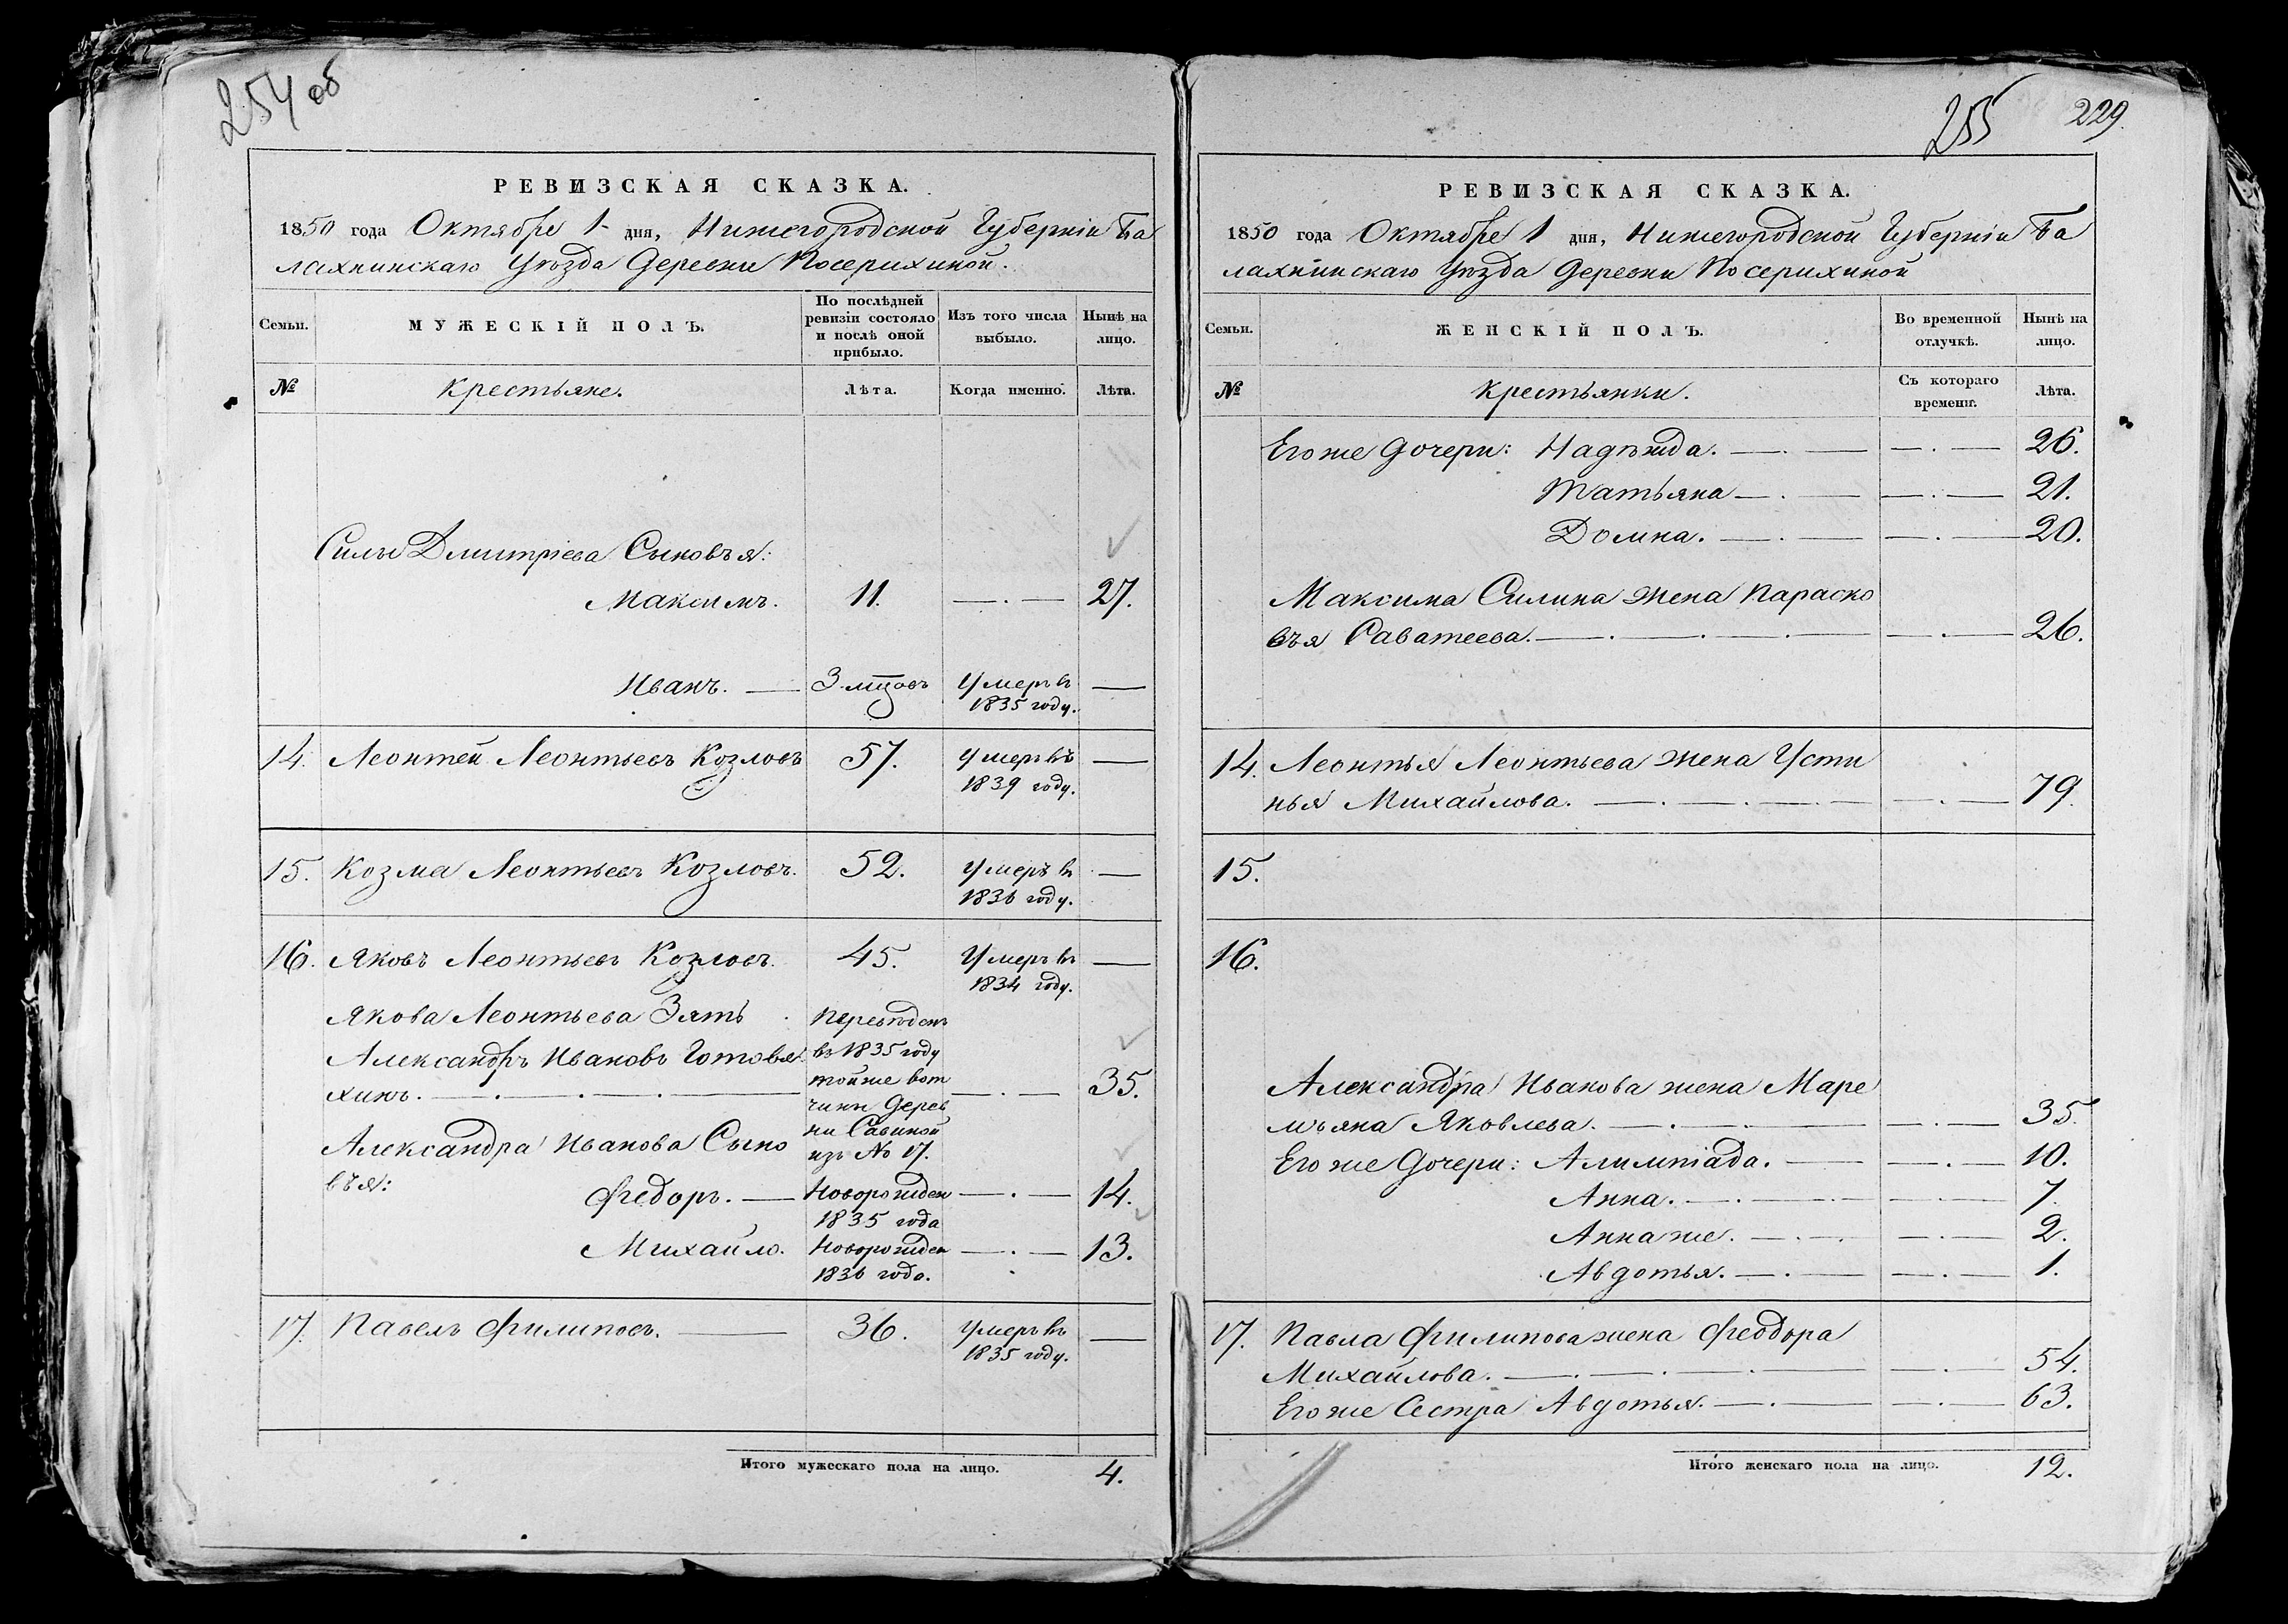 254 об
РЕВИЗСКАЯ СКАЗКА.
1850 года Октября 1 дня, Нижегородской Губерніи Ба
лахнинскаго Уѣзда Деревни Посерихиной.
Семьи.
МУЖЕСКІЙ ПОЛЪ.
По послѣдней ревизіи состояло и послѣ оной прибыло.
Изъ того числа выбыло.
Нынѣ на лицо.
№
Крестьяне.
Лѣта.
Когда именно.
Лѣта.
Силы Дмитріева Сыновья:
Максимъ. 11. — . — 27.
Иванъ. — 3 мцовъ Умеръ въ —
1835 году.
14. Леонтей Леонтьевъ Козловъ 57. Умеръ въ —
1839 году.
15. Козма Леонтьевъ Козловъ. 52. Умеръ въ —
1836 году.
16. Яковъ Леонтьевъ Козловъ. 45. Умеръ въ —
1834 году.
Якова Леонтьева Зять Переведенъ
Александръ Ивановъ Готовя въ 1835 году
тойже вот
хинъ. — . — . — чины Дерев — . — 35.
ни Савиной
Александра Иванова Сыно изъ № 17.
вья:
Федоръ. — Новорожден — . — 14.
1835 года
Михайло. Новорожден — . — 13.
1836 года.
17. Павелъ Филиповъ. — 36. Умеръ въ —
1835 году.
Итого мужескаго пола на лицо. 4.
255 229.
РЕВИЗСКАЯ СКАЗКА.
1850 года Октября 1 дня, Нижегородской Губерніи Ба
лахнинскаго Уѣзда Деревни Посерихиной
Семьи.
ЖЕНСКІЙ ПОЛЪ.
Во временной отлучкѣ.
Нынѣ на лицо.
№
Крестьянки.
Съ котораго времени.
Лѣта.
Егоже Дочери: Надѣжда. — . — — . — 26.
Татьяна — . — — . — 21.
Домна. — . — — . — 20.
Максима Силина жена Параско
вья Саватеева. — . — . — . — — . — 26.
14. Леонтья Леонтьева жена Усти
нья Михайлова. — . — . — . — — . — 79.
15.
16.
Александра Иванова жена Маре
мьяна Яковлева. — . — . — — . — 35.
Егоже Дочери: Алимпіада. — — . — 10.
Анна. — . — . — — . — 7.
Аннаже. — . — . — . — 2.
Авдотья. — . — — . — 1.
17. Павла Филипова жена Феодора
Михайлова. — . — . — . — — . — 54.
Егоже Сестра Авдотья. — . — — . — 63.
Итого женскаго пола на лицо. 12.